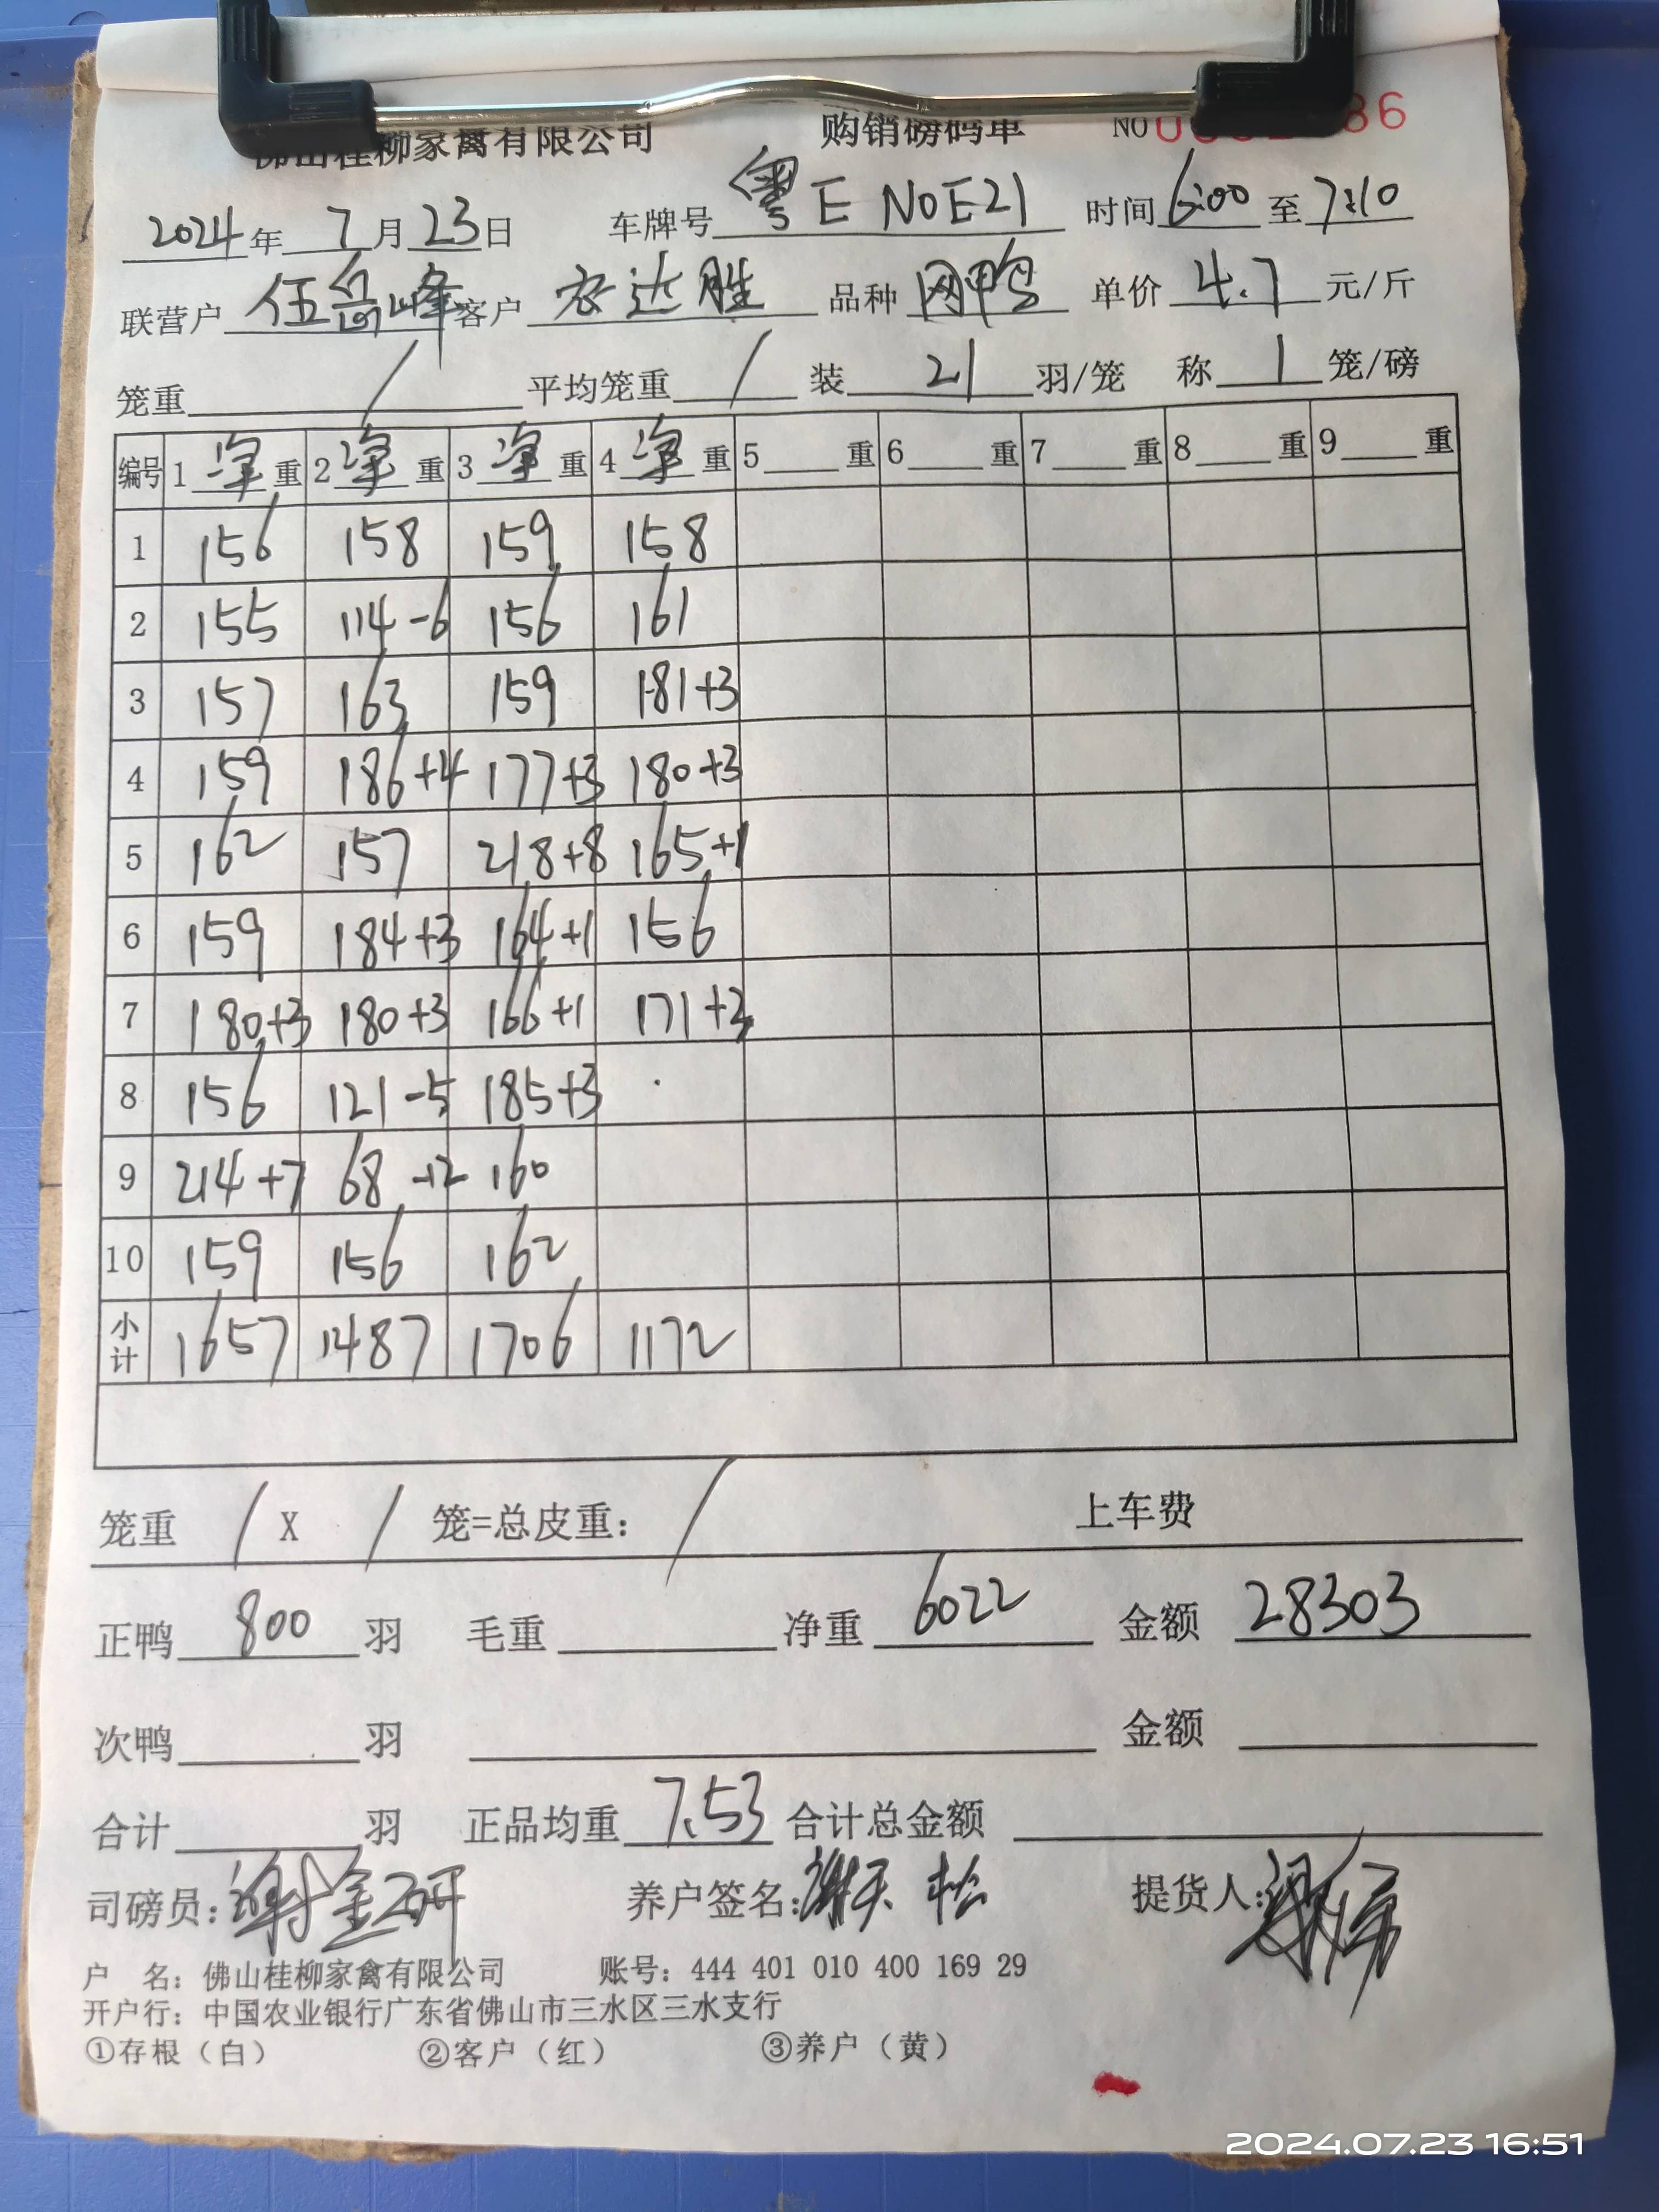 佛山桂柳家禽有限公司 购销磅码单 NO 86
2024年 7月23日 车牌号 粤E N0E21 时间 6:00 至 7:10
联营户 伍岳峰 客户 农达胜 品种 网鸭 单价 4.7 元/斤
笼重 / 平均笼重 / 装 21 羽/笼 称 1 笼/磅
编号 1 净 重 2 净 重 3 净 重 4 净 重 5 重 6 重 7 重 8 重 9 重
1 156 158 159 158
2 155 114-6 156 161
3 157 163 159 181+3
4 159 186+4 177+3 180+3
5 162 157 218+8 165+1
6 159 184+3 164+1 156
7 180+3 180+3 166+1 171+3
8 156 121-5 185+3
9 214+7 68-12 160
10 159 156 162
小计 1657 1487 1706 1172
笼重 / X / 笼=总皮重: / 上车费
正鸭 800 羽 毛重 净重 6022 金额 28303
次鸭 羽 金额
合计 羽 正品均重 7.53 合计总金额
司磅员: 谢金研 养户签名: 谢天松 提货人:
户 名: 佛山桂柳家禽有限公司 账号: 444 401 010 400 169 29
开户行: 中国农业银行广东省佛山市三水区三水支行
①存根（白） ②客户（红） ③养户（黄）
2024.07.23 16:51